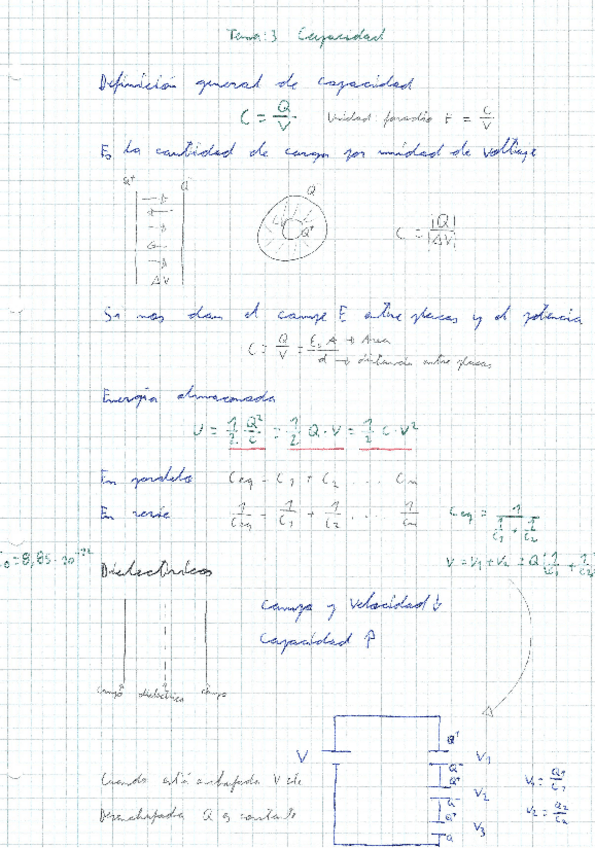 Tema: 3 Capacidad
Definición general de capacidad
C = Q/V Unidad: faradio F = C/V
Es la cantidad de carga por unidad de voltaje
Q⁺ Q⁻
Q⁻
Q⁺
C = |Q|/|ΔV|
ΔV
Si nos dan el campo E entre placas y el potencia
C = Q/V = E₀ A/d → Area
→ distancia entre placas
Energía almacenada
U = 1/2 · Q²/C = 1/2 Q · V = 1/2 C · V²
En paralelo Ceq = C₁ + C₂ ... Cn
En serie 1/Ceq = 1/C₁ + 1/C₂ ... 1/Cn
Ceq = 1/(1/C₁ + 1/C₂)
V = V₁ + V₂ = Q (1/C₁ + 1/C₂
Dieléctricos
campo y velocidad ↓
Capacidad ↑
campo dieléctrico campo
V
Q⁺ V₁
Q⁻
Q⁺
V₂
Q⁻
Q⁺
V₃
Q
V₁ = Q₁/C₁
V₂ = Q₂/C₂
Cuando está enchufada V cte
Desenchufada Q es constante